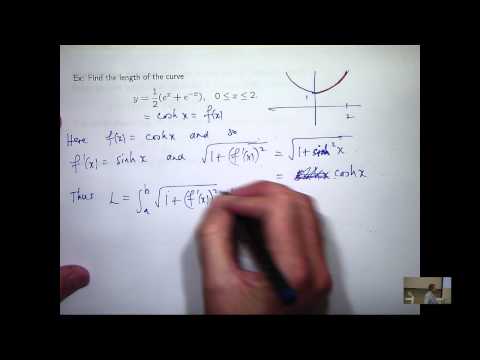 Ex: Find the length of the curve
y = 1/2(e^x + e^-x), 0 ≤ x ≤ 2.
= cosh x = f(x)
1
2
Here f(x) = cosh x and so
f'(x) = sinh x and √(1 + (f'(x))^2) = √(1 + sinh^2 x)
= cosh x
Thus L = ∫_a^b √(1 + (f'(x))^2)